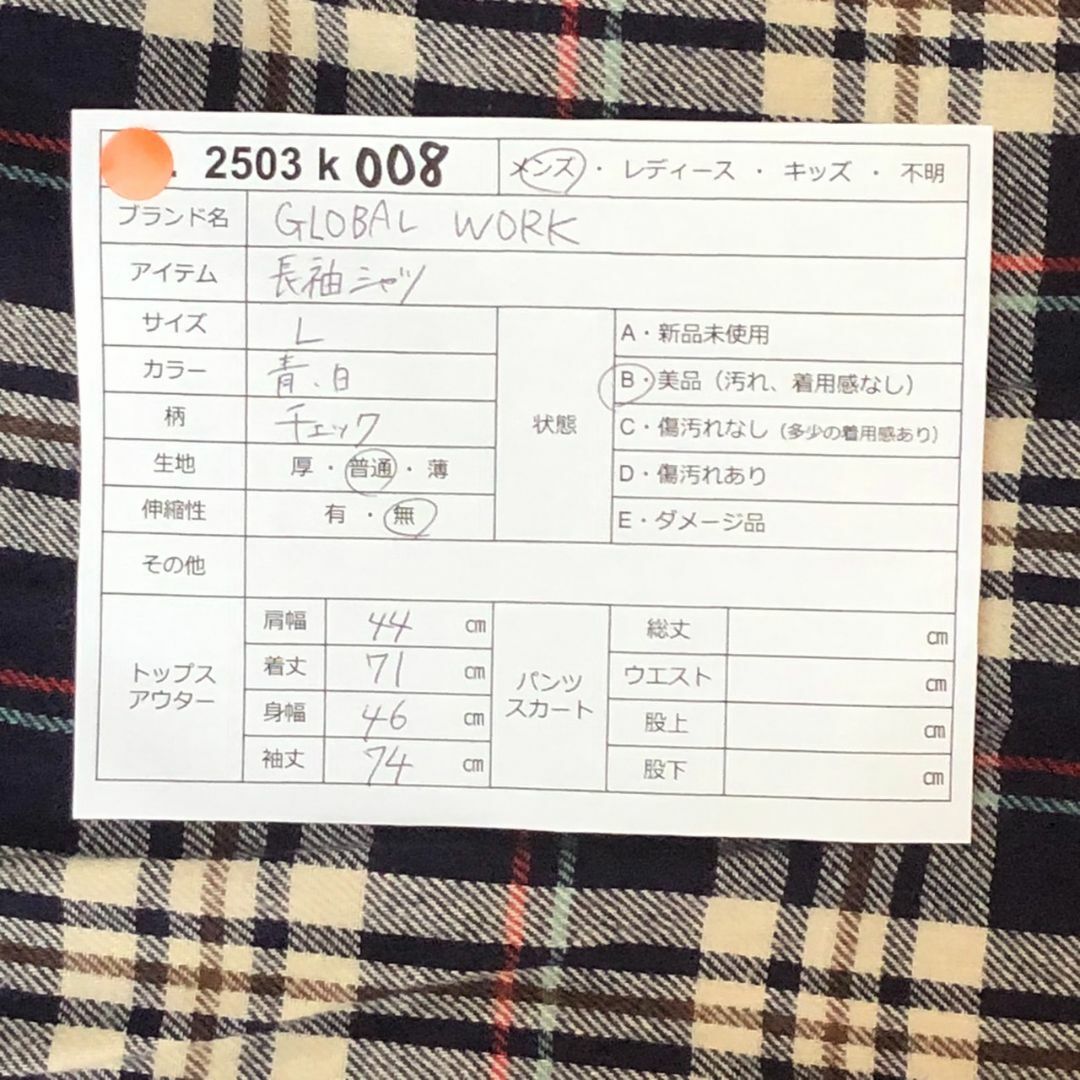 . 2503 k 008 メンズ ・ レディース ・ キッズ ・ 不明
ブランド名 GLOBAL WORK
アイテム 長袖シャツ
サイズ L
カラー 青、白
柄 チェック
生地 厚・普通・薄
伸縮性 有・無
状態
A・新品未使用
B・美品（汚れ、着用感なし）
C・傷汚れなし（多少の着用感あり）
D・傷汚れあり
E・ダメージ品
その他
トップス
アウター
肩幅 44 cm
着丈 71 cm
身幅 46 cm
袖丈 74 cm
パンツ
スカート
総丈 cm
ウエスト cm
股上 cm
股下 cm